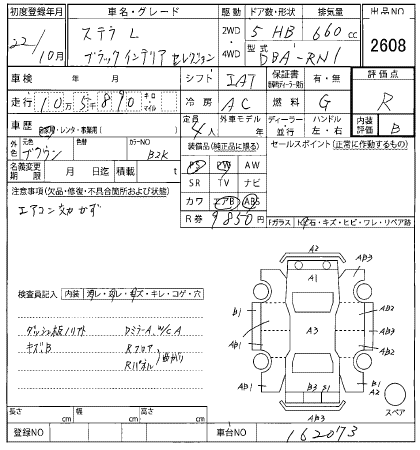 初度登録年月 車名・グレード 駆動 ドア数・形状 排気量 出品NO
22/10月 ステラ L 2WD 5 HB 660cc 2608
ブラックインテリア セレクション 4WD 型式 DBA-RN1
車検 年 月 シフト IAT 保証書 有・無 評価点
走行 10万5千890 キロ マイル 冷房 AC 燃料 G R
車歴 自家用・レンタ・事業用( ) 定員 4人 外車モデル 年 ディーラー 並行 ハンドル 左・右 内装評価 B
外色 元色 ブラウン 色替 カラーNO B2K 装備品(純正品に限る) セールスポイント(正常に動作するもの)
PS PW AW
名義変更期限 月 日迄 積載 t SR TV ナビ
注意事項(欠品・修復・不具合箇所および状態) カワ エアB ABS
エアコン効かず R券 9850円
Fガラス
A2
A1
A3
AB3
B1
AB2
AB1
検査員記入 内装
ダッシュ板ノリアト DミラーA,W/CA
キズ、B Rフロア
Rパネル 曲がり
B3 S1
AB3
B1
A2
スペア
長さ cm 幅 cm 高さ cm
登録NO 車台NO 162073